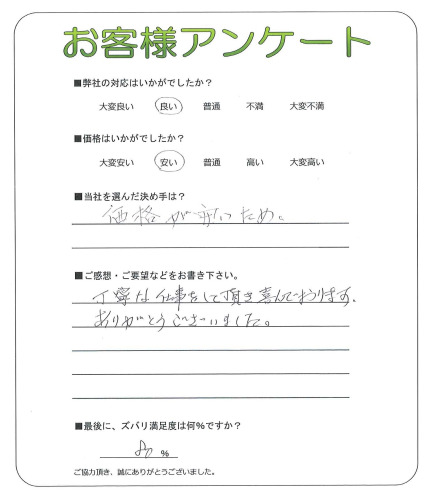 お客様アンケート
■弊社の対応はいかがでしたか？
大変良い 良い 普通 不満 大変不満
■価格はいかがでしたか？
大変安い 安い 普通 高い 大変高い
■当社を選んだ決め手は？
価格が安いため。
■ご感想・ご要望などをお書き下さい。
丁寧な仕事をして頂き喜んでおります。
ありがとうございました。
■最後に、ズバリ満足度は何％ですか？
80 ％
ご協力頂き、誠にありがとうございました。